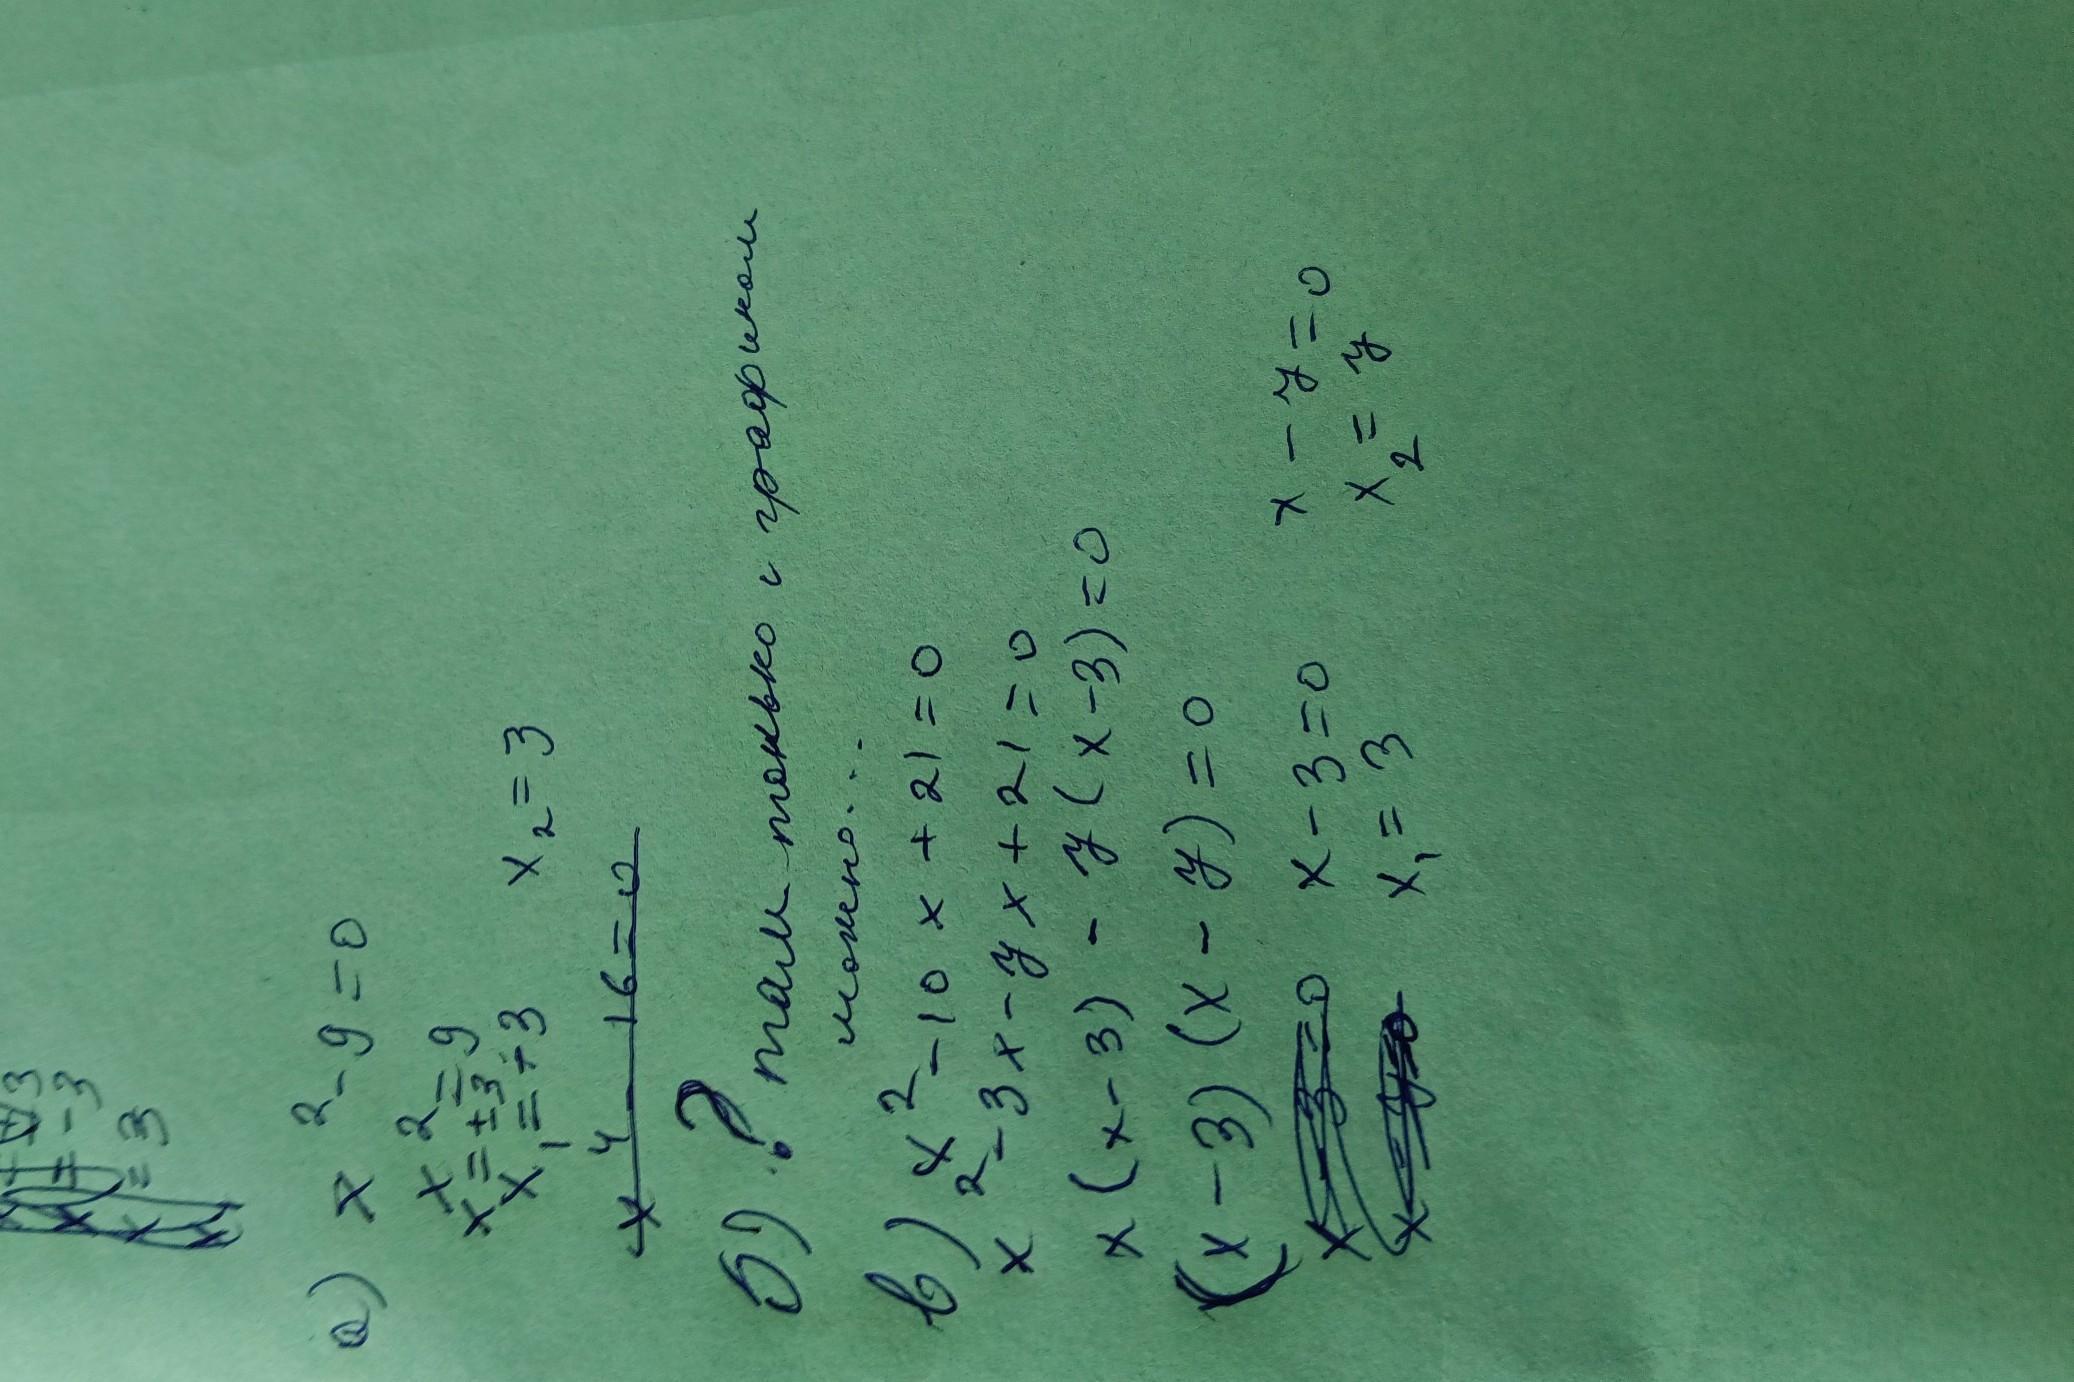 = -3
= 3
а) x² - 9 = 0
x² = 9
x = ±3
x₁ = ÷3 x₂ = 3
x⁴ - 16 = 0
б) ? там только с графиком
можно...
в) x² - 10x + 21 = 0
x² - 3x - yx + 21 = 0
x(x - 3) - y(x - 3) = 0
(x - 3)(x - y) = 0
x - 3 = 0 x - 3 = 0 x - y = 0
x₁ = 3 x₂ = y